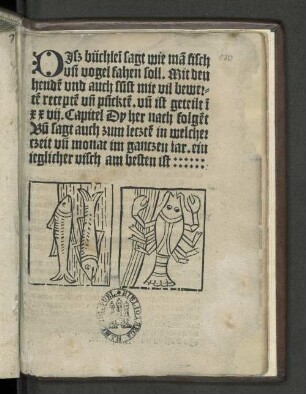 Diſz büchlein ſagt wie mā fiſch
vñ vogel fahen ſoll. Mit den
hendē vnd auch ſüſt mit vil bewer⸗
tē receptē vñ pücktē. vñ iſt geteilt ī
xxvij. Capitel Dy her nach folgēt
Uñ ſagt auch zum letztē in welcher
tzeit vñ monat im gantzen iar. ein
ieglicher viſch am beſten iſt